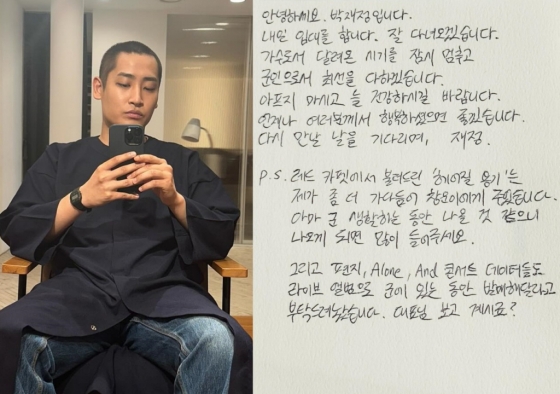 안녕하세요. 박재정입니다.
내일 입대를 합니다. 잘 다녀오겠습니다.
가수로서 달려온 시기를 잠시 멈추고
군인으로서 최선을 다하겠습니다.
아프지 마시고 늘 건강하시길 바랍니다.
언제나 여러분께서 행복하셨으면 좋겠습니다.
다시 만날 날을 기다리며, 재정.
P.S. 레드 카펫에서 불러드린 '헤어질 용기'는
제가 좀 더 가다듬어 참운이에게 주었습니다.
아마 군 생활하는 동안 나올 것 같으니
나오게 되면 많이 들어주세요.
그리고 편지, Alone, And 콘서트 데이터들도
라이브 앨범으로 군에 있는 동안 발매해달라고
부탁드려놨습니다. 대표님 보고 계시죠?